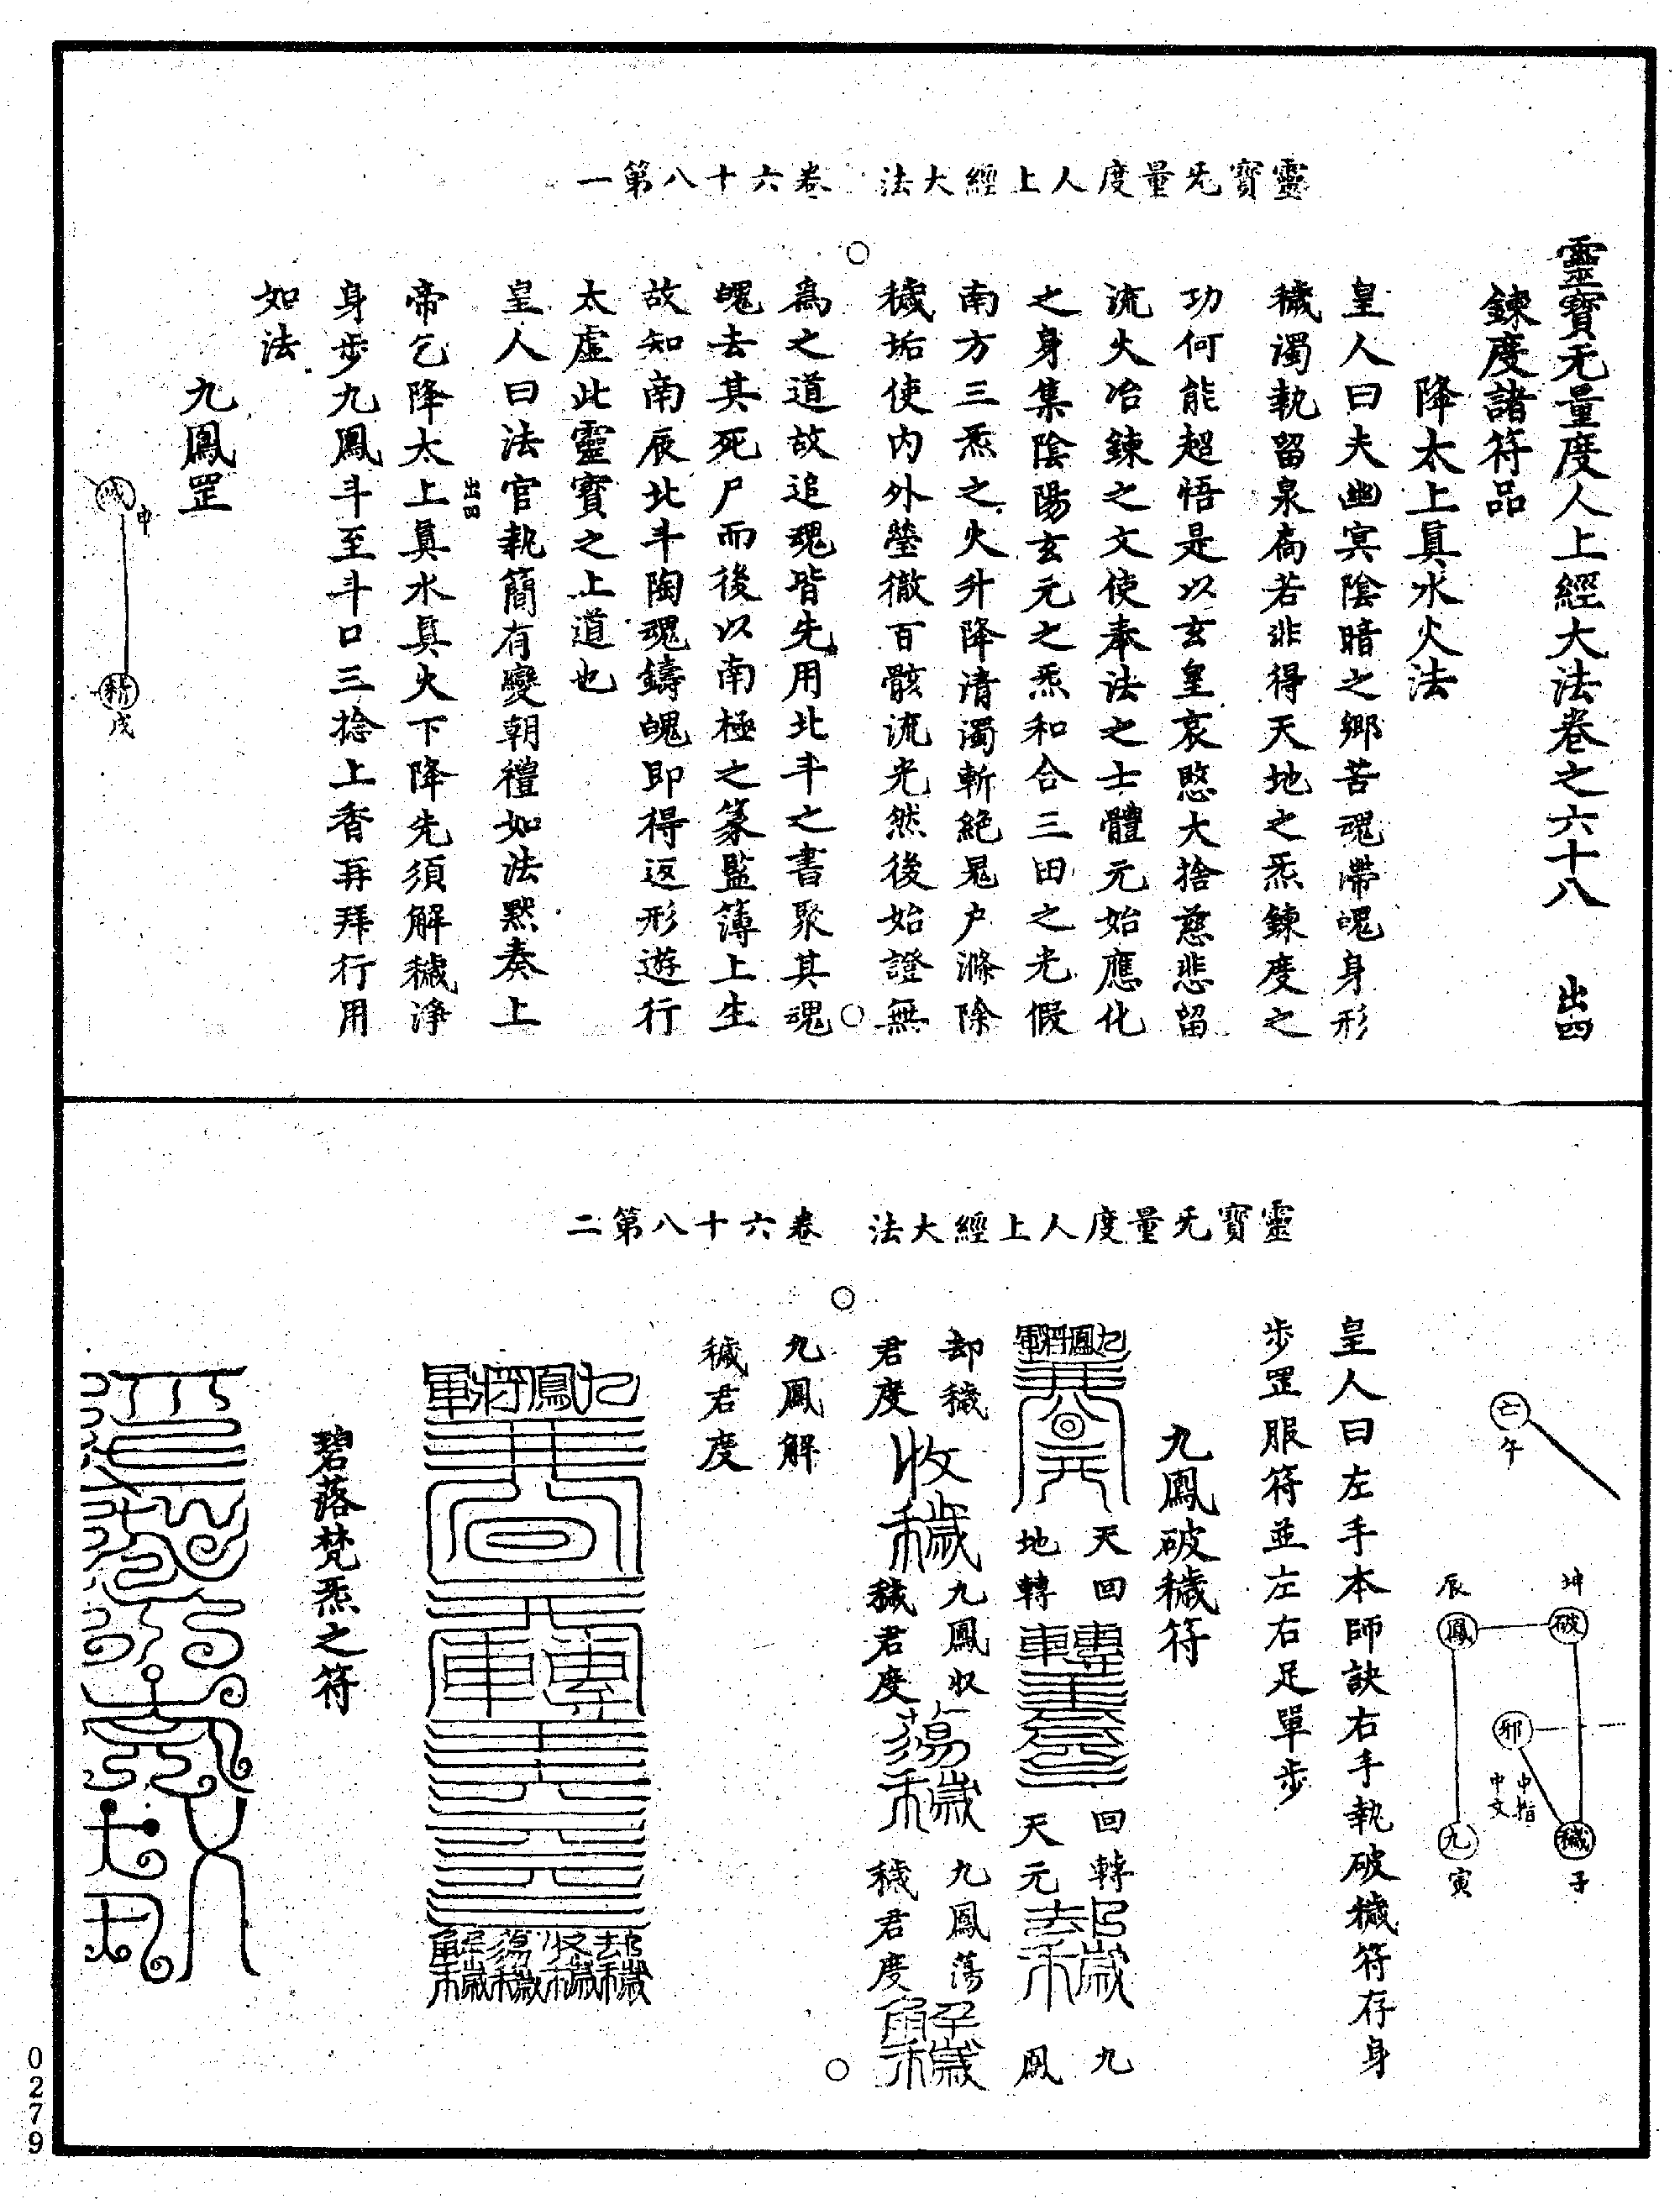 靈寶无量度人上經大法　卷六十八第一
靈寶无量度人上經大法卷之六十八　出四
鍊度諸符品
降太上眞水火法
皇人曰夫幽冥陰暗之鄉苦魂滯魄身形
穢濁執留泉扃若非得天地之炁鍊度之
功何能超悟是以玄皇哀愍大捨慈悲留
流火冶鍊之文使奉法之士體元始應化
之身集陰陽玄元之炁和合三田之光假
南方三炁之火升降清濁斬絕尸滌除
穢垢使内外瑩徹百骸流光然後始證無
爲之道故追魂皆先用北斗之書聚其魂
魄去其死尸而後以南極之篆監簿上生
故知南辰北斗陶魂鑄魄即得返形遊行
太虛此靈寶之上道也
皇人曰法官執簡有變朝禮如法黙奏上
出四
帝乞降太上眞水眞火下降先須解穢淨
身步九鳳斗至斗口三捻上香再拜行用
如法
九鳳罡
滅
申
精
戌
靈寶无量度人上經大法　卷六十八第二
亡
午
坤
破
辰
鳳
邪
中指
中文
穢
子
九
寅
皇人曰左手本師訣右手執破穢符存身
步罡服符並左右足單步
九鳳破穢符
九鳳將軍
天回
地轉
回轉
天元
九
鳳
却穢
君度
收穢
九鳳収
穢君度
蕩穢
九鳳蕩
穢君度
解穢
九鳳解
穢君度
九鳳將軍
碧落梵炁之符
0279